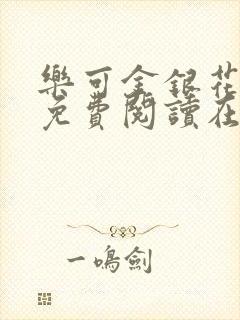 樂可金銀花
免費閱讀在
一鳴劍